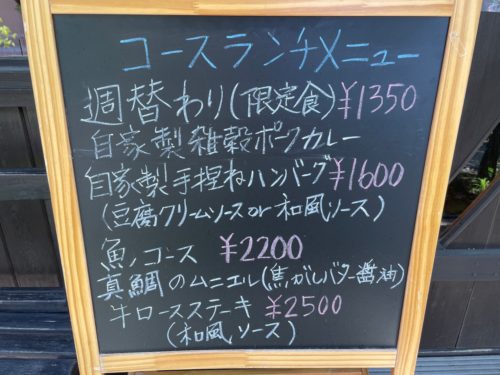 コースランチメニュー
週替わり(限定食)¥1350
自家製雑穀ポークカレー
自家製手捏ねハンバーグ¥1600
(豆腐クリームソースor和風ソース)
魚ノコース ¥2200
真鯛のムニエル(焦がしバター醤油)
牛ロースステーキ ¥2500
(和風ソース)